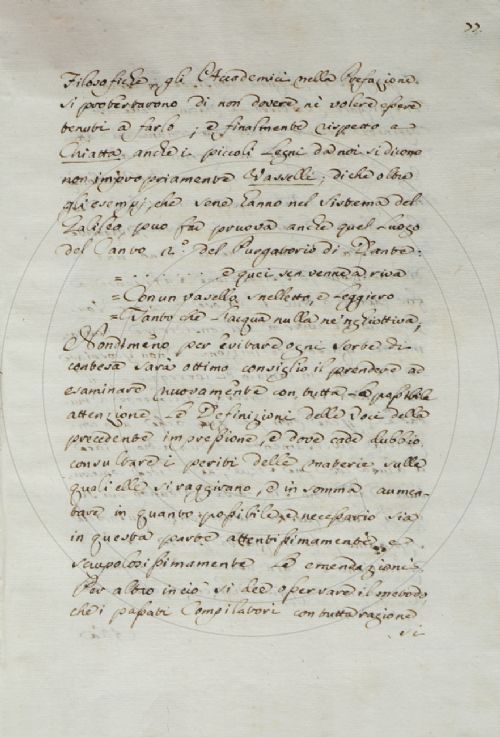 22.
Filosofiche gli Accademici nella Prefazione
si protestarono di non dovere, nè volere essere
tenuti a farlo; e finalmente rispetto a
Chiatta anche i piccoli Legni da noi si dicono
non impropriamente Vasselli; di che oltre
gli esempj, che se ne hanno nel Sistema del
Galileo, può far pruova anche quel luogo
del Canto 2.º del Purgatorio di Dante:
= . . . . . . . e quei sen venne a riva
= Con un vasello snelletto, e leggiero
= Tanto che l'acqua nulla ne 'nghiottiva;
Nondimeno per evitare ogni sorte di
contesa sarà ottimo consiglio il prendere ad
esaminare nuovamente con tutta la passibile
attenzione le Definizioni delle Voci della
precedente impressione, e dove cade dubbio
consultare i periti delle materie sulle
quali elle si raggirano, e in somma aumen-
tare in quanto possibile, e necessario sia
in questa parte attentissimamente, e
scrupolosissimamente le emendazioni.
Per altro in ciò si dee osservare il metodo,
che i passati Compilatori con tutta ragione
si